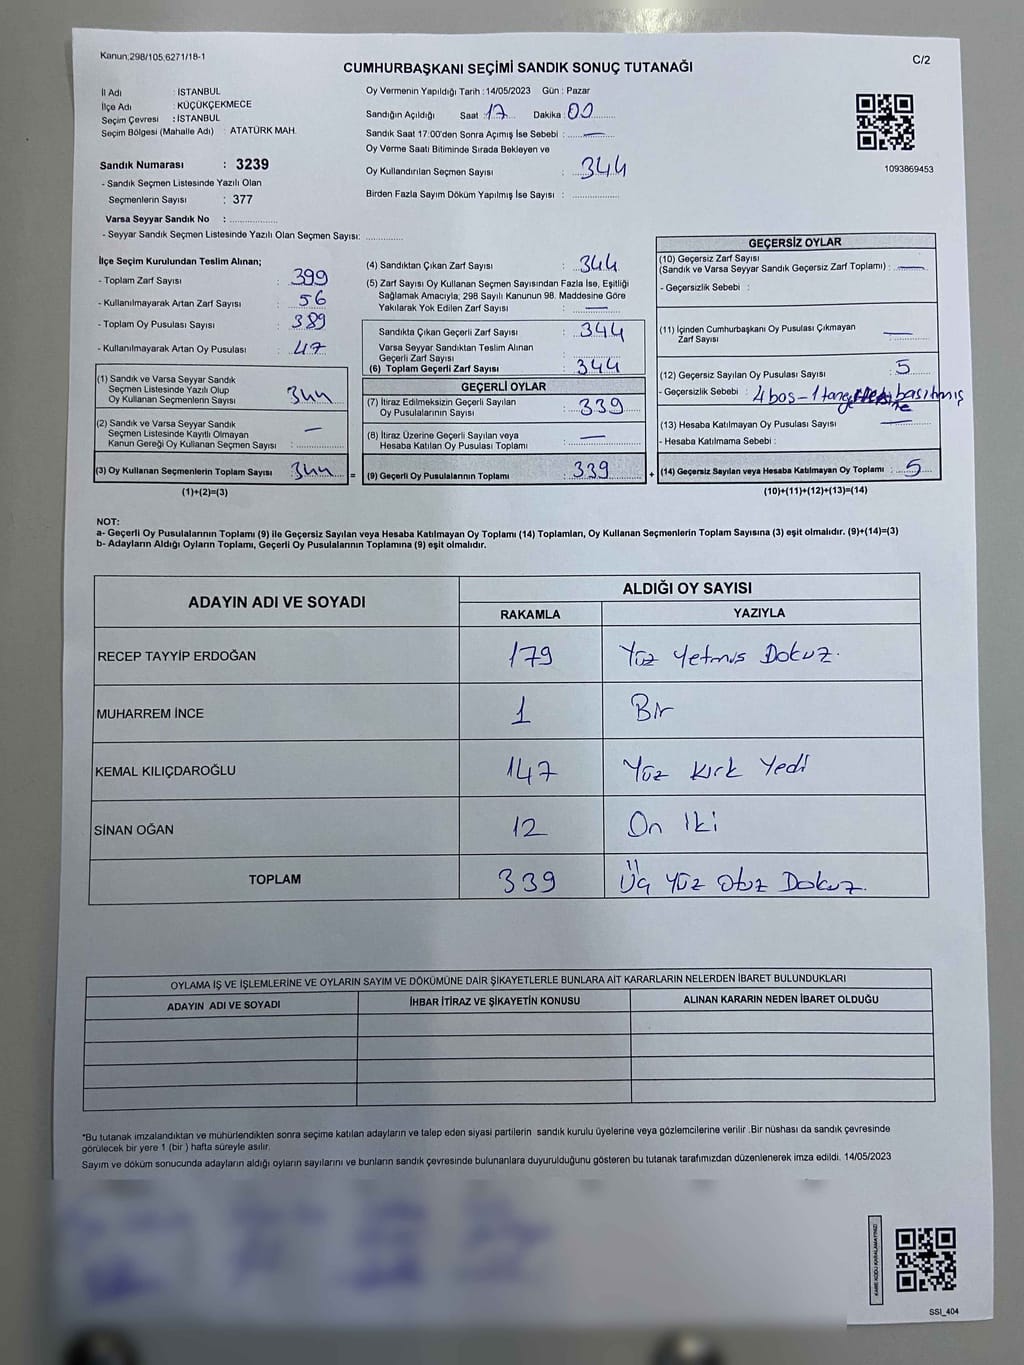 Kanun,298/105,6271/18-1
C/2
CUMHURBAŞKANI SEÇİMİ SANDIK SONUÇ TUTANAĞI
İl Adı : İSTANBUL
İlçe Adı : KÜÇÜKÇEKMECE
Seçim Çevresi : İSTANBUL
Seçim Bölgesi (Mahalle Adı) : ATATÜRK MAH.
Sandık Numarası : 3239
- Sandık Seçmen Listesinde Yazılı Olan
Seçmenlerin Sayısı : 377
Varsa Seyyar Sandık No :
- Seyyar Sandık Seçmen Listesinde Yazılı Olan Seçmen Sayısı:
Oy Vermenin Yapıldığı Tarih :14/05/2023 Gün : Pazar
Sandığın Açıldığı Saat 17 Dakika 00
Sandık Saat 17:00'den Sonra Açımış İse Sebebi : —
Oy Verme Saati Bitiminde Sırada Bekleyen ve
Oy Kullandırılan Seçmen Sayısı : 344
Birden Fazla Sayım Döküm Yapılmış İse Sayısı :
1093869453
İlçe Seçim Kurulundan Teslim Alınan;
- Toplam Zarf Sayısı : 399
- Kullanılmayarak Artan Zarf Sayısı : 56
- Toplam Oy Pusulası Sayısı : 389
- Kullanılmayarak Artan Oy Pusulası : 47
(1) Sandık ve Varsa Seyyar Sandık
Seçmen Listesinde Yazılı Olup
Oy Kullanan Seçmenlerin Sayısı : 344
(2) Sandık ve Varsa Seyyar Sandık
Seçmen Listesinde Kayıtlı Olmayan
Kanun Gereği Oy Kullanan Seçmen Sayısı : —
(3) Oy Kullanan Seçmenlerin Toplam Sayısı : 344 =
(1)+(2)=(3)
(4) Sandıktan Çıkan Zarf Sayısı : 344
(5) Zarf Sayısı Oy Kullanan Seçmen Sayısından Fazla İse, Eşitliği
Sağlamak Amacıyla; 298 Sayılı Kanunun 98. Maddesine Göre
Yakılarak Yok Edilen Zarf Sayısı : —
Sandıkta Çıkan Geçerli Zarf Sayısı : 344
Varsa Seyyar Sandıktan Teslim Alınan
Geçerli Zarf Sayısı :
(6) Toplam Geçerli Zarf Sayısı : 344
GEÇERLİ OYLAR
(7) İtiraz Edilmeksizin Geçerli Sayılan
Oy Pusulalarının Sayısı : 339
(8) İtiraz Üzerine Geçerli Sayılan veya
Hesaba Katılan Oy Pusulası Toplamı : —
(9) Geçerli Oy Pusulalarının Toplamı : 339 +
GEÇERSİZ OYLAR
(10) Geçersiz Zarf Sayısı
(Sandık ve Varsa Seyyar Sandık Geçersiz Zarf Toplamı) : —
- Geçersizlik Sebebi :
(11) İçinden Cumhurbaşkanı Oy Pusulası Çıkmayan
Zarf Sayısı : —
(12) Geçersiz Sayılan Oy Pusulası Sayısı : 5
- Geçersizlik Sebebi : 4 boş - 1 basıtmış
(13) Hesaba Katılmayan Oy Pusulası Sayısı : —
- Hesaba Katılmama Sebebi :
(14) Geçersiz Sayılan veya Hesaba Katılmayan Oy Toplamı : 5
(10)+(11)+(12)+(13)=(14)
NOT:
a- Geçerli Oy Pusulalarının Toplamı (9) ile Geçersiz Sayılan veya Hesaba Katılmayan Oy Toplamı (14) Toplamları, Oy Kullanan Seçmenlerin Toplam Sayısına (3) eşit olmalıdır. (9)+(14)=(3)
b- Adayların Aldığı Oyların Toplamı, Geçerli Oy Pusulalarının Toplamına (9) eşit olmalıdır.
ADAYIN ADI VE SOYADI
ALDIĞI OY SAYISI
RAKAMLA YAZIYLA
RECEP TAYYİP ERDOĞAN 179 Yüz Yetmiş Dokuz.
MUHARREM İNCE 1 Bir
KEMAL KILIÇDAROĞLU 147 Yüz Kırk Yedi
SİNAN OĞAN 12 On İki
TOPLAM 339 Üç Yüz Otuz Dokuz.
OYLAMA İŞ VE İŞLEMLERİNE VE OYLARIN SAYIM VE DÖKÜMÜNE DAİR ŞİKAYETLERLE BUNLARA AİT KARARLARIN NELERDEN İBARET BULUNDUKLARI
ADAYIN ADI VE SOYADI İHBAR İTİRAZ VE ŞİKAYETİN KONUSU ALINAN KARARIN NEDEN İBARET OLDUĞU
*Bu tutanak imzalandıktan ve mühürlendikten sonra seçime katılan adayların ve talep eden siyasi partilerin sandık kurulu üyelerine veya gözlemcilerine verilir .Bir nüshası da sandık çevresinde
görülecek bir yere 1 (bir ) hafta süreyle asılır.
Sayım ve döküm sonucunda adayların aldığı oyların sayılarını ve bunların sandık çevresinde bulunanlara duyurulduğunu gösteren bu tutanak tarafımızdan düzenlenerek imza edildi. 14/05/2023
KARE KODU KARALAMAYINIZ!
SSI_404